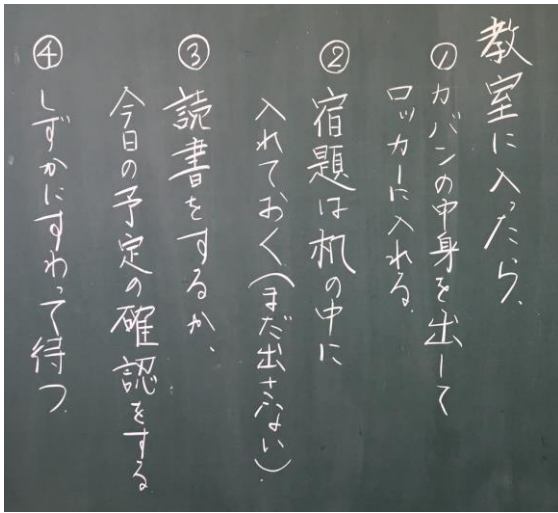 教室に入ったら、
①カバンの中身を出して
ロッカーに入れる。
②宿題は机の中に
入れておく(まだ出さない)。
③読書をするか、
今日の予定の確認をする
④しずかにすわって待つ。